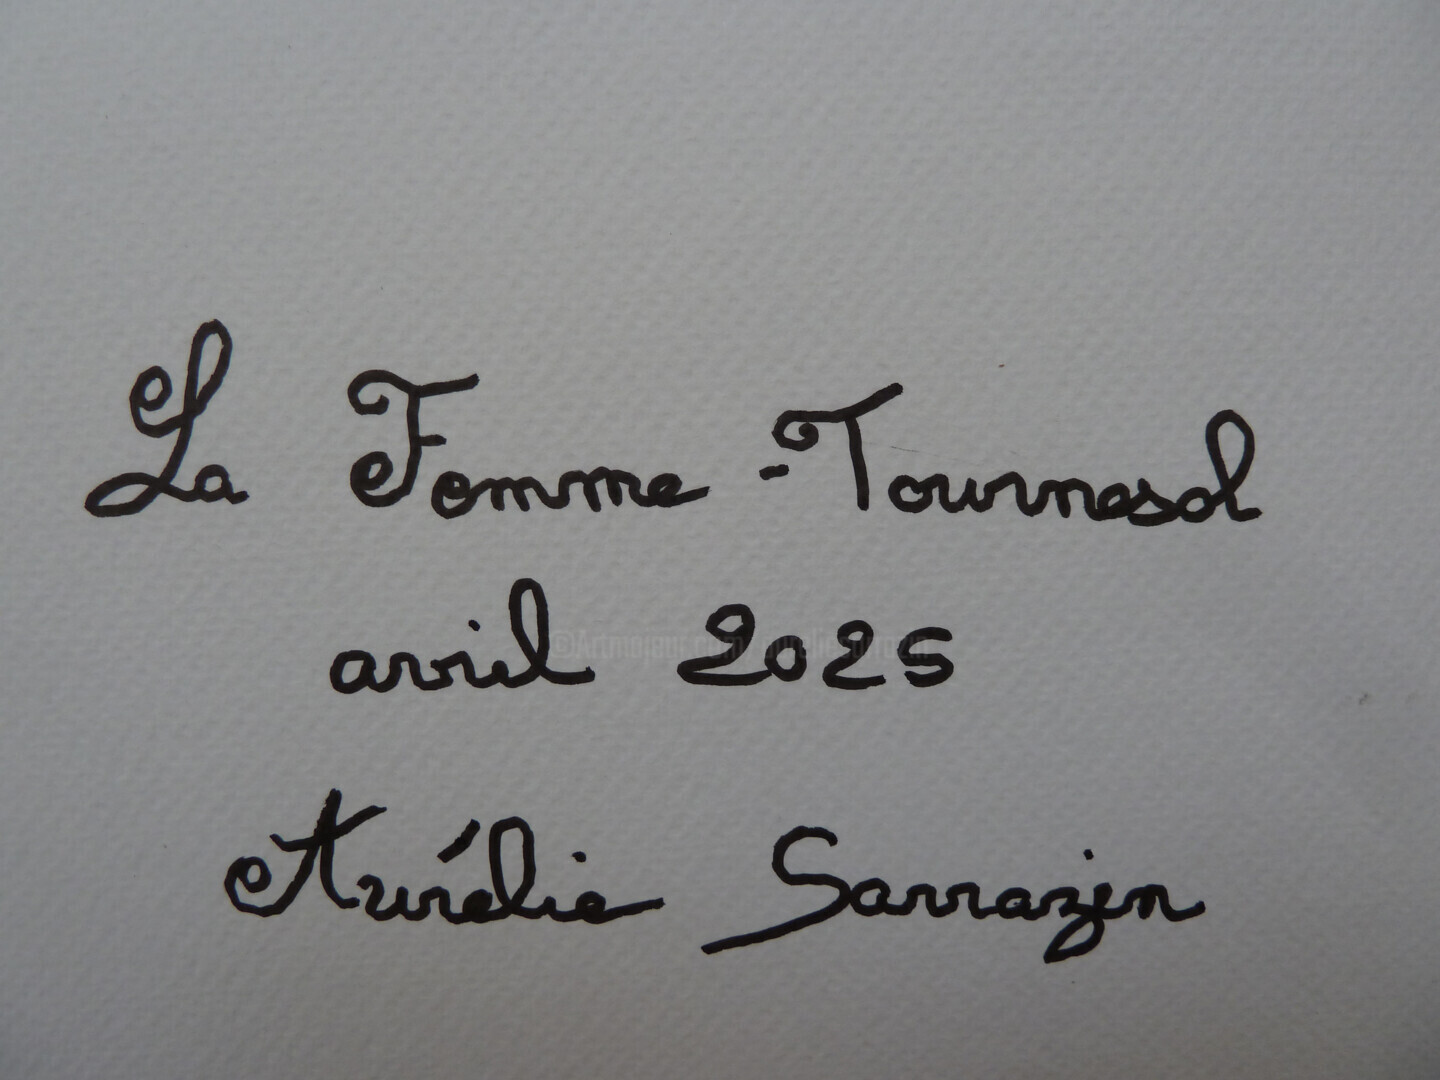 La Femme-Tournesol
avril 2025
©Artmajeur.com/aureliesarrazin
Aurélie Sarrazin